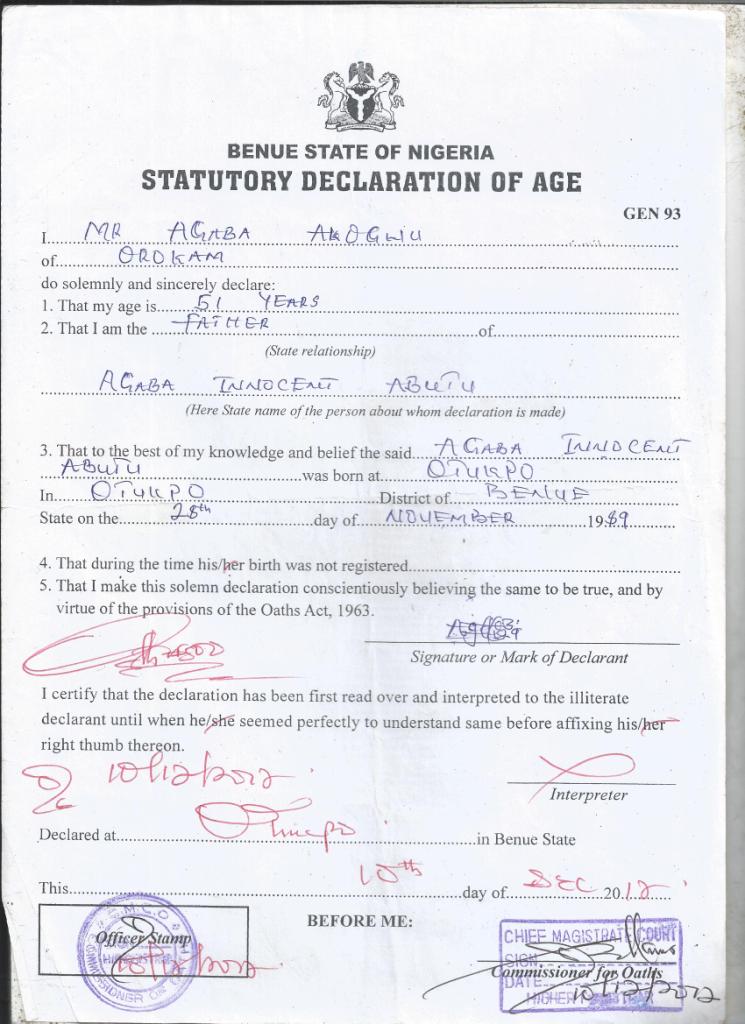 BENUE STATE OF NIGERIA
STATUTORY DECLARATION OF AGE
GEN 93
I MR AGABA AKOGWU
of OROKAM
do solemnly and sincerely declare:
1. That my age is 51 YEARS
2. That I am the FATHER of
(State relationship)
AGABA INNOCENT ABUTU
(Here State name of the person about whom declaration is made)
3. That to the best of my knowledge and belief the said AGABA INNOCENT
ABUTU was born at OTUKPO
In OTUKPO District of BENUE
State on the 28th day of NOVEMBER 1989
4. That during the time his/her birth was not registered
5. That I make this solemn declaration conscientiously believing the same to be true, and by
virtue of the provisions of the Oaths Act, 1963.
Signature or Mark of Declarant
I certify that the declaration has been first read over and interpreted to the illiterate
declarant until when he/she seemed perfectly to understand same before affixing his/her
right thumb thereon.
10/12/2012
Interpreter
Declared at Otukpo in Benue State
This 10th day of DEC 2012
BEFORE ME:
Officer Stamp
10/12/2012
CHIEF MAGISTRATE COURT
SIGN
Commissioner for Oaths
DATE
10/12/2012
HIGHER